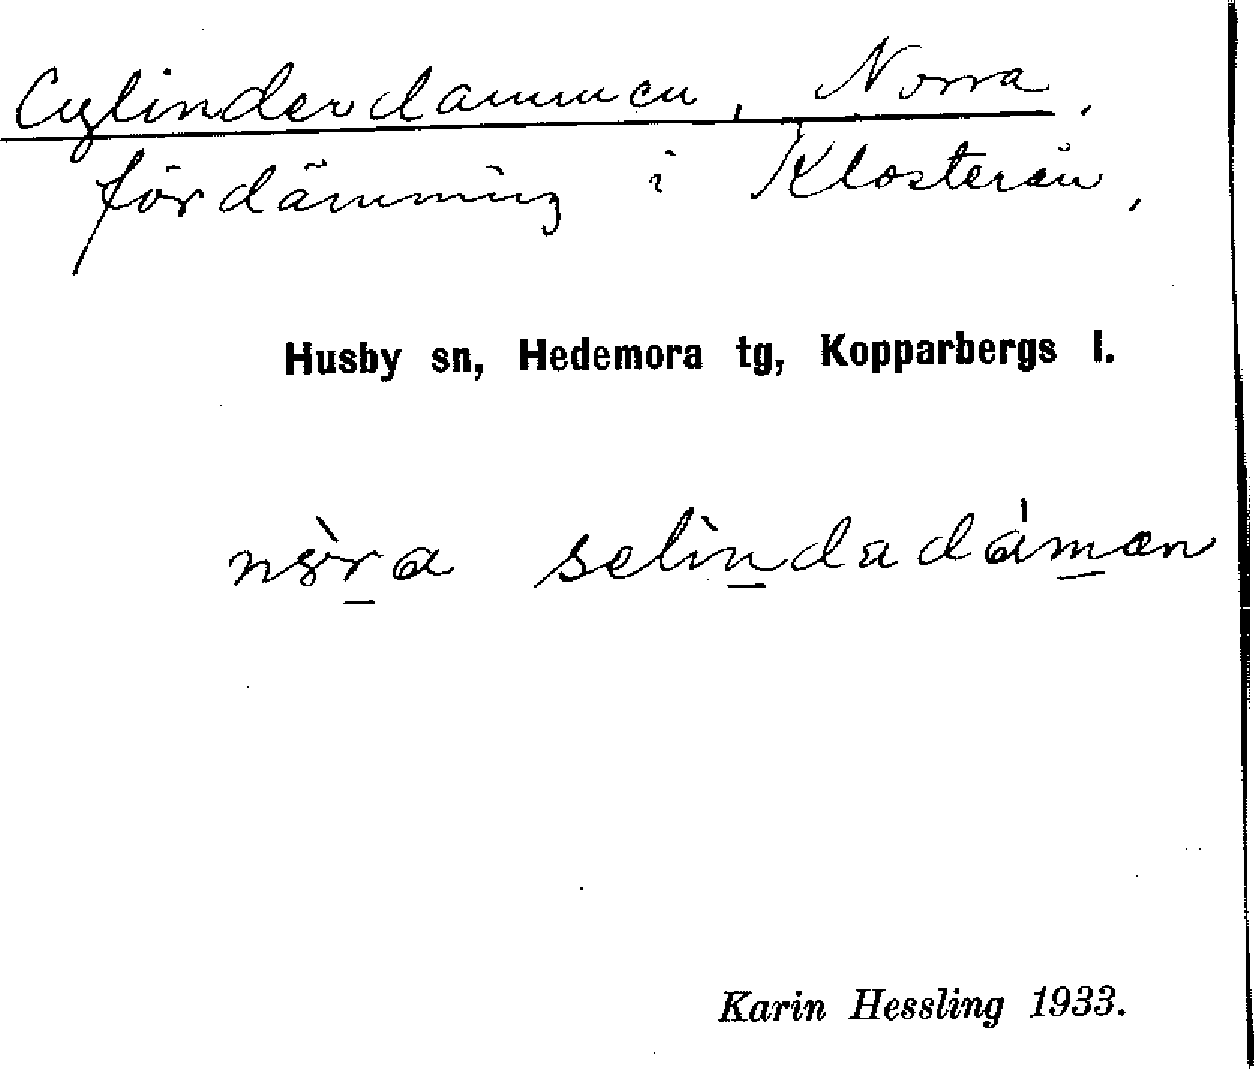 Cylinderdammen, Norra,
fördämning i Klosterån,
Husby sn, Hedemora tg, Kopparbergs l.
selìndadámæn
Karin Hessling 1933.